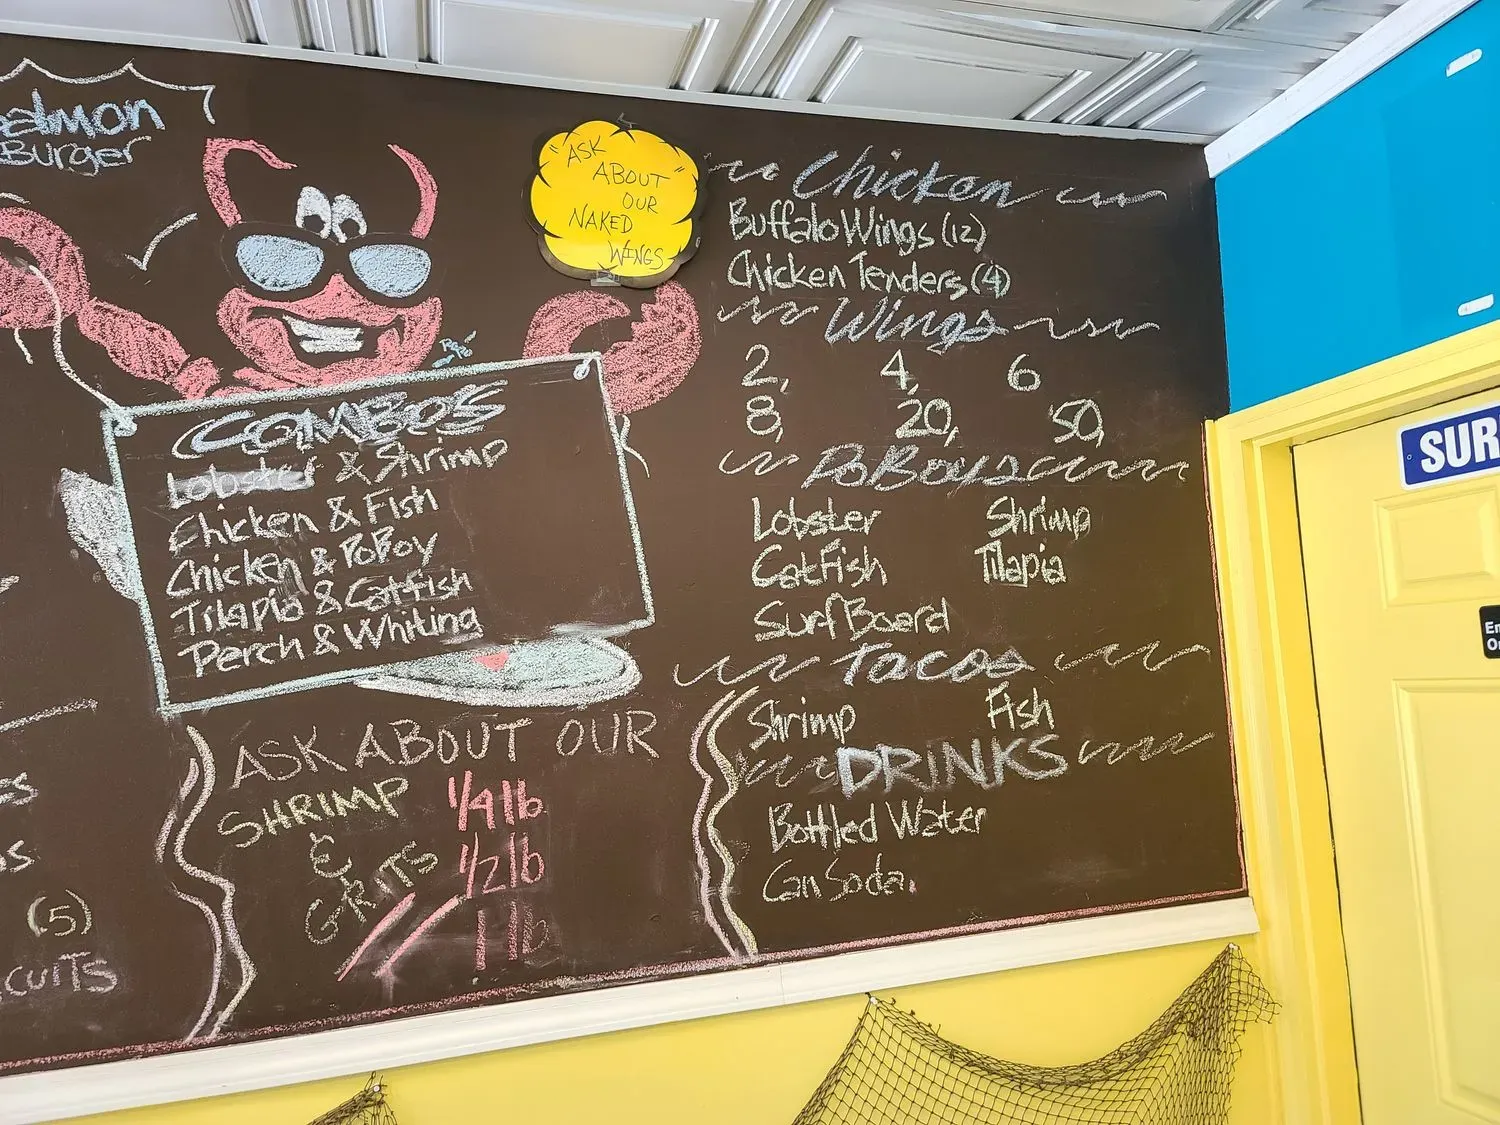 Salmon
Burger
"ASK
ABOUT"
OUR
NAKED
WINGS
COMBOS
Lobster & Shrimp
Chicken & Fish
Chicken & PoBoy
Tilapia & Catfish
Perch & Whiting
ASK ABOUT OUR
SHRIMP
&
GRITS
1/4 lb
1/2 lb
1 lb
(5)
Chicken
Buffalo Wings (12)
Chicken Tenders (4)
Wings
2, 4, 6
8, 20, 50,
PoBoyz
Lobster Shrimp
CatFish Tilapia
Surf Board
Tacos
Shrimp Fish
DRINKS
Bottled Water
Can Soda.
SUR